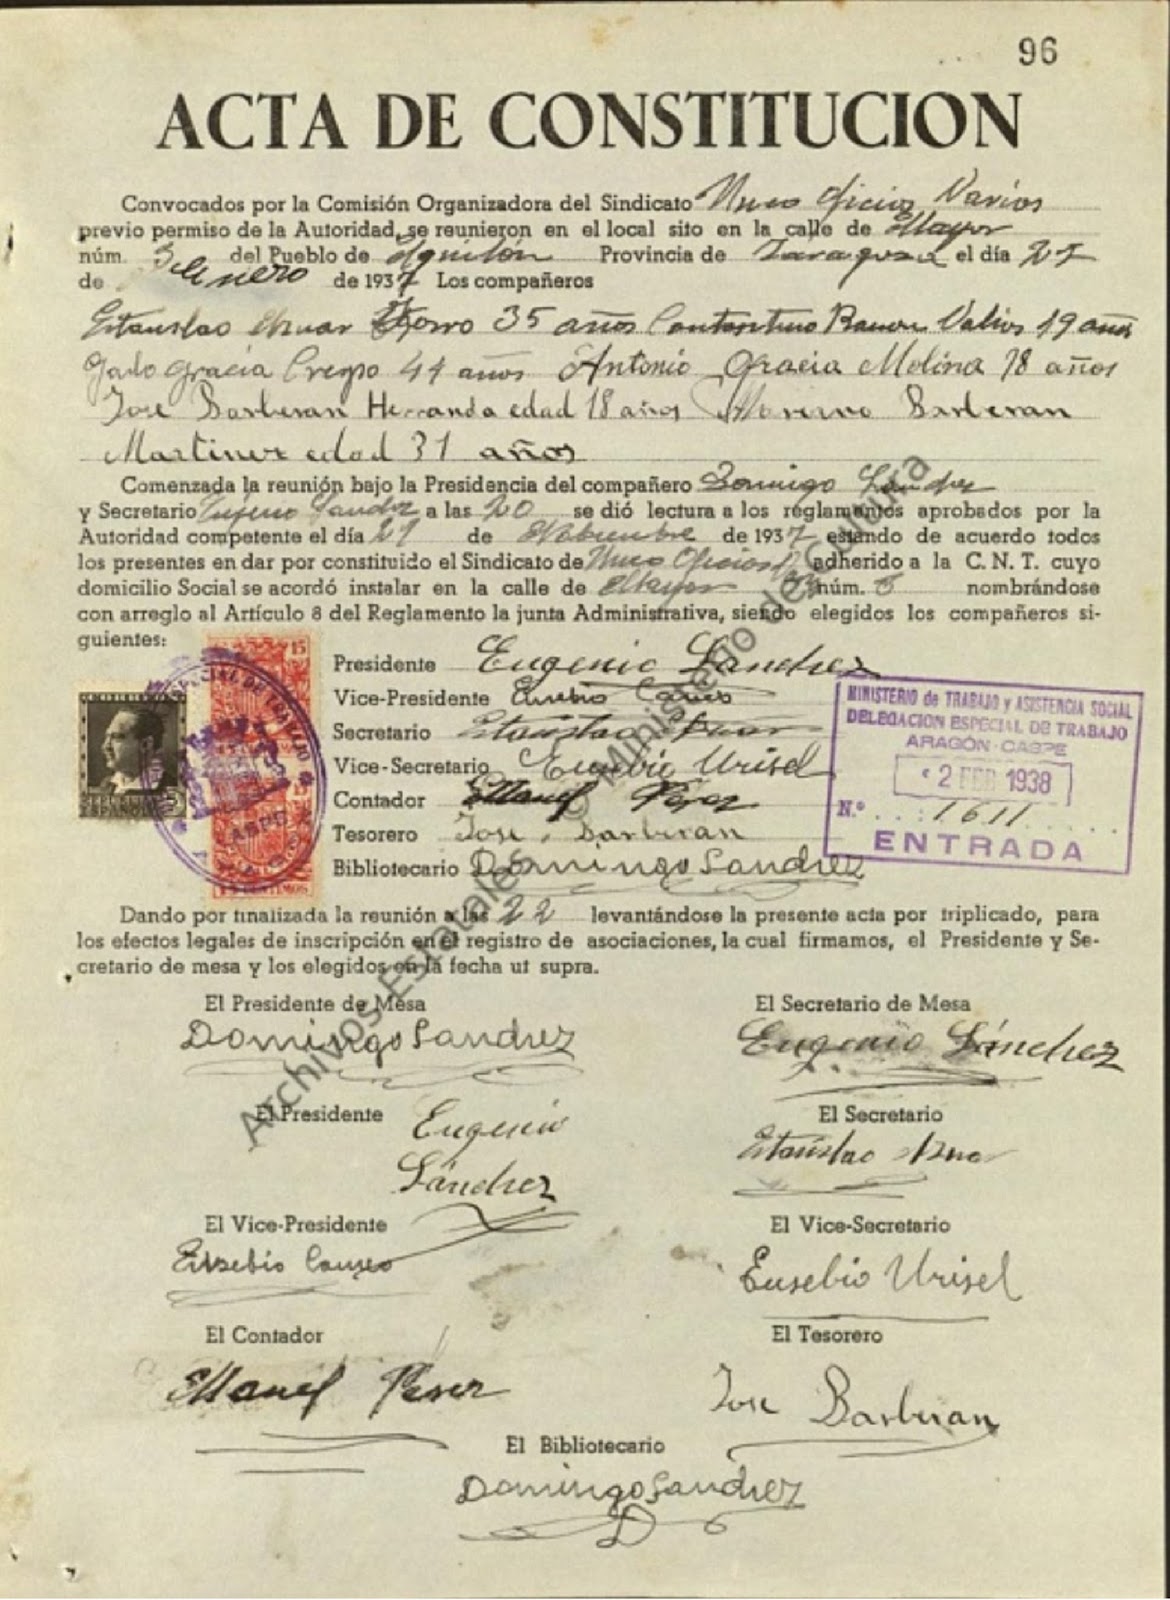 96
ACTA DE CONSTITUCION
Convocados por la Comisión Organizadora del Sindicato Oficios Varios
previo permiso de la Autoridad, se reunieron en el local sito en la calle de Mayor
núm. 3 del Pueblo de Aguilón Provincia de Zaragoza el día 27
de Enero de 1937 Los compañeros
Estanislao Aznar 35 años Ramon 19 años
Gracia Crespo 41 años Antonio Gracia Molina 18 años
Jose Barberan Herranda edad 18 años Barberan
Martinez edad 31 años
Comenzada la reunión bajo la Presidencia del compañero Domingo Sandrez
y Secretario Eugenio Sandrez a las 20 se dió lectura a los reglamentos aprobados por la
Autoridad competente el día 21 de Nobienbre de 1937 estando de acuerdo todos
los presentes en dar por constituido el Sindicato de Oficios adherido a la C. N. T. cuyo
domicilio Social se acordó instalar en la calle de Mayor núm. 3 nombrándose
con arreglo al Artículo 8 del Reglamento la junta Administrativa, siendo elegidos los compañeros si-
guientes:
Presidente Eugenio Sandrez
Vice-Presidente Eusebio
Secretario Estanislao Aznar
Vice-Secretario Eusebio Urisel
Contador Manel Perez
Tesorero Jose Barberan
Bibliotecario Domingo Sandrez
15
REPUBLICA
ESPAÑOLA
15 CENTIMOS
ESPECIAL DE TRABAJO
CASPE
MINISTERIO de TRABAJO y ASISTENCIA SOCIAL
DELEGACION ESPECIAL DE TRABAJO
ARAGÓN-CASPE
2 FEB 1938
N.º 1611
ENTRADA
Dando por finalizada la reunión a las 22 levantándose la presente acta por triplicado, para
los efectos legales de inscripción en el registro de asociaciones, la cual firmamos, el Presidente y Se-
cretario de mesa y los elegidos en la fecha ut supra.
El Presidente de Mesa El Secretario de Mesa
Domingo Sandrez Eugenio Sánchez
El Presidente El Secretario
Eugenio Sánchez Estanislao Aznar
El Vice-Presidente El Vice-Secretario
Eusebio Eusebio Urisel
El Contador El Tesorero
Manel Perez Jose Barberan
El Bibliotecario
Domingo Sandrez
Archivos Estatales © Ministerio de Cultura